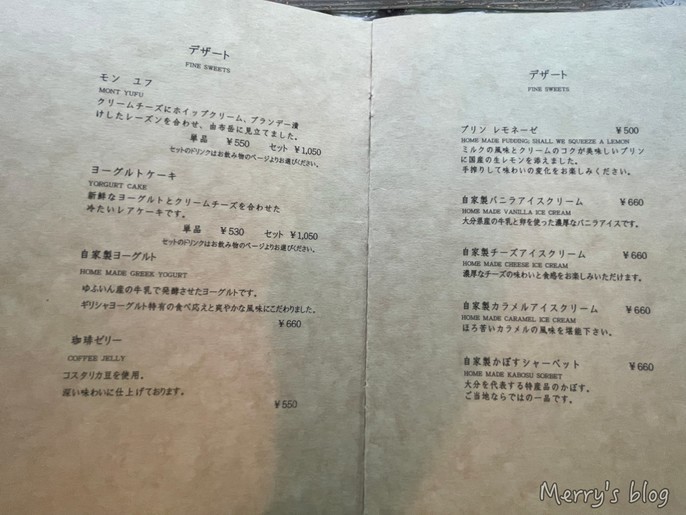 デザート
FINE SWEETS
モン ユフ
MONT YUFU
クリームチーズにホイップクリーム、ブランデー漬
けしたレーズンを合わせ、由布岳に見立てました。
単品 ¥550 セット ¥1,050
セットのドリンクはお飲み物のページよりお選びください。
ヨーグルトケーキ
YORGURT CAKE
新鮮なヨーグルトとクリームチーズを合わせた
冷たいレアケーキです。
単品 ¥530 セット ¥1,050
セットのドリンクはお飲み物のページよりお選びください。
自家製ヨーグルト
HOME MADE GREEK YOGURT
ゆふいん産の牛乳で発酵させたヨーグルトです。
ギリシャヨーグルト特有の食べ応えと爽やかな風味にこだわりました。
¥660
珈琲ゼリー
COFFEE JELLY
コスタリカ豆を使用。
深い味わいに仕上げております。
¥550
デザート
FINE SWEETS
プリン レモネーゼ ¥500
HOME MADE PUDDING; SHALL WE SQUEEZE A LEMON
ミルクの風味とクリームのコクが美味しいプリン
に国産の生レモンを添えました。
手搾りして味わいの変化をお楽しみください。
自家製バニラアイスクリーム ¥660
HOME MADE VANILLA ICE CREAM
大分県産の牛乳と卵を使った濃厚なバニラアイスです。
自家製チーズアイスクリーム ¥660
HOME MADE CHEESE ICE CREAM
濃厚なチーズの味わいと食感をお楽しみいただけます。
自家製カラメルアイスクリーム ¥660
HOME MADE CARAMEL ICE CREAM
ほろ苦いカラメルの風味を堪能下さい。
自家製かぼすシャーベット ¥660
HOME MADE KABOSU SORBET
大分を代表する特産品のかぼす。
ご当地ならではの一品です。
Merry's blog